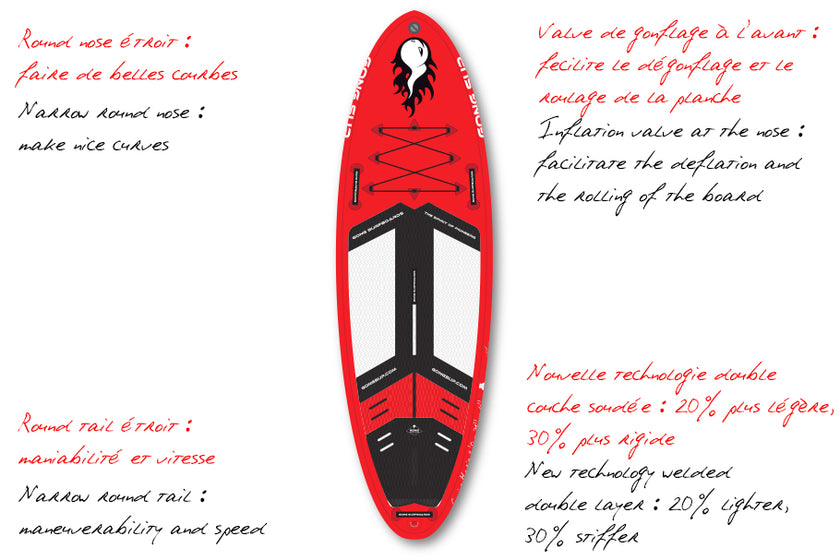 Round nose étroit :
faire de belles courbes
Narrow round nose :
make nice curves
Valve de gonflage à l'avant :
fecilite le dégonflage et le
roulage de la planche
Inflation valve at the nose :
facilitate the deflation and
the rolling of the board
GONG SUP
GONG SUP
GONG SURFBOARDS
THE SPIRIT OF PIONEERS
GONGSUP.COM
GONGSUP.COM
Round tail étroit :
maniabilité et vitesse
Narrow round tail :
maneuverability and speed
Nouvelle technologie double
couche soudée : 20% plus légère,
30% plus rigide
New technology welded
double layer : 20% lighter,
30% stiffer